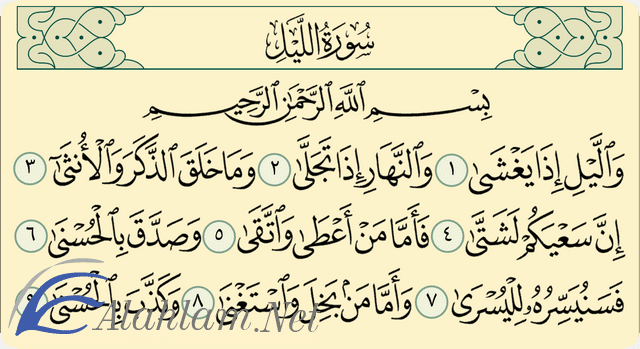 سُورَةُ اللَّيْلِ
بِسْمِ اللَّهِ الرَّحْمَٰنِ الرَّحِيمِ
وَاللَّيْلِ إِذَا يَغْشَىٰ ١ وَالنَّهَارِ إِذَا تَجَلَّىٰ ٢ وَمَا خَلَقَ الذَّكَرَ وَالْأُنْثَىٰٓ ٣
إِنَّ سَعْيَكُمْ لَشَتَّىٰ ٤ فَأَمَّا مَنْ أَعْطَىٰ وَاتَّقَىٰ ٥ وَصَدَّقَ بِالْحُسْنَىٰ ٦
فَسَنُيَسِّرُهُۥ لِلْيُسْرَىٰ ٧ وَأَمَّا مَنۢ بَخِلَ وَاسْتَغْنَىٰ ٨ وَكَذَّبَ بِالْحُسْنَىٰ ٩
Alahlam.Net